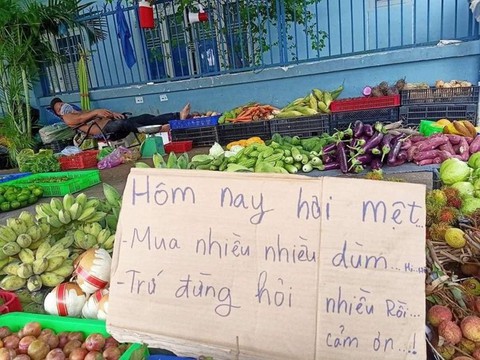 Hôm nay hơi mệt...
- Mua nhiều nhiều dùm...
- Trứ đừng hỏi nhiều Rồi...
cảm ơn...!